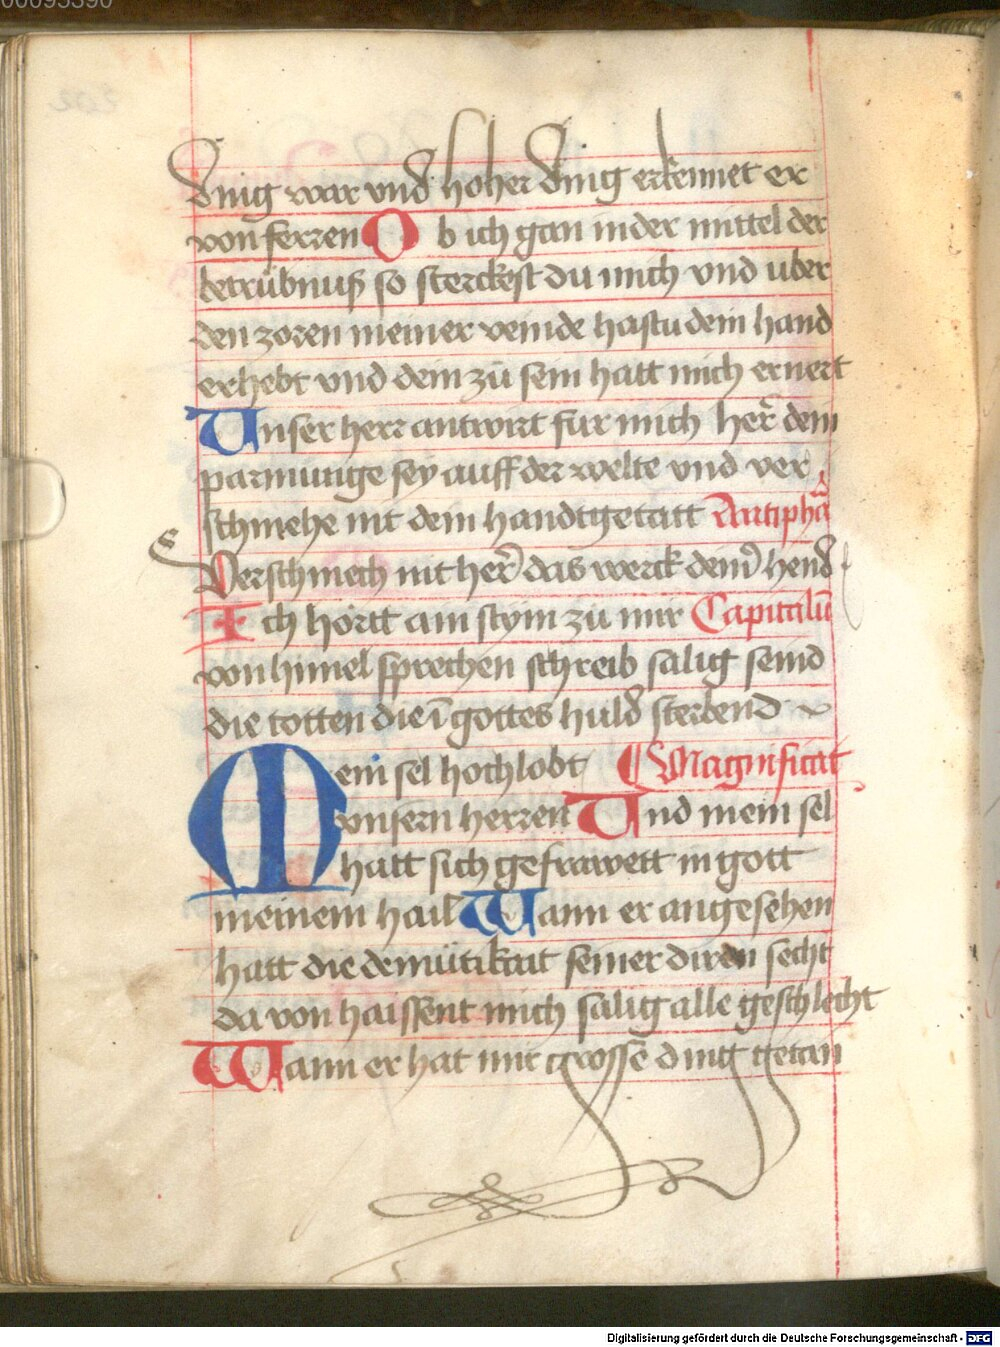 00095390
dnig war vnd hoher ding erkennet er
von ferren Ob ich gan in der mittel der
betrübnuß so sterckest du mich vnd uber
den zoren meiner veinde hastu dein hand
erhebt vnd dein zü sein hatt mich ernert
Unser herr antwirt fur mich her̃ dein
parmunge sey auff der welte vnd ver
schmehe nit dein handtgetatt Antiphã
Verschmech nit her̃ das werck dein̾ hend̾
Ich hortt ain stym zü mir Capitilũ
von himel sprechen schreib salig seind
die totten die ĩ gottes huld̾ sterbend
Mein sel hochlobt Magnificat
vnsern herren Und mein sel
hatt sich gefrawett in gott
meinem hail Wann er angesehen
hatt die demütikait seiner diren secht
da von haissent mich salig alle geschlecht
Wann er hat mir grosse ding getan
Digitalisierung gefördert durch die Deutsche Forschungsgemeinschaft - DFG